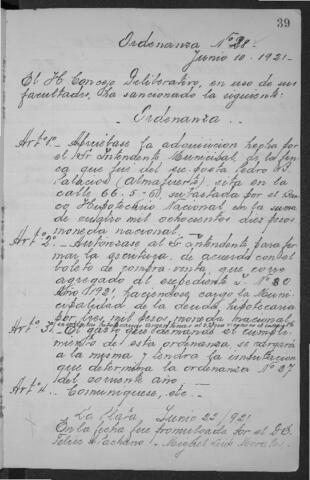 39
Ordenanza Nº 28.
Junio 10. 1921.
El H Concejo Deliberativo, en uso de sus
facultades, ha sancionado la siguiente:
Ordenanza
Artº 1º - Apruébase la adquisicion hecha por
el Sr Intendente Municipal, de la fin-
ca que fué del ex-poeta Pedro B.
Palacios (Almafuerte), sita en la
calle 66-5-6, rematada por el Ban
co Hipotecario Nacional en la suma
de cuatro mil ochocientos diez pesos
moneda nacional.
Artº 2º - Autorízase al Sr Intendente para fir-
mar la escritura, de acuerdo con el
boleto de compra-venta, que corre
agregado al expediente Nº 80
Año 1921, haciéndose cargo la Muni-
cipalidad de la deuda hipotecaria
por tres mil pesos moneda nacional
Artº 3º - El gasto que demande el cumpli-
miento del esta ordenanza, se cargará
a la misma y tendrá la imputacion
que determina la ordenanza Nº 27
del corriente año.
Artº 4. - Comuníquese, etc.
La Plata Junio 22/921
En la fecha fue promulgada por el D.E.